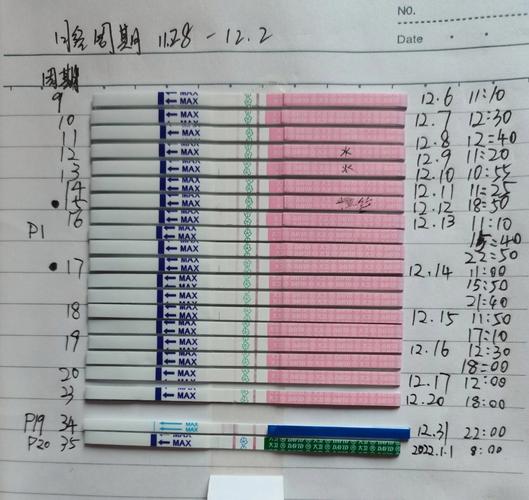 NO.
Date
月经周期 11.28 - 12.2
周期
9 MAX 12.6 11:10
10 MAX 12.7 12:30
11 MAX 12.8 12:40
12 MAX 12.9 11:20
13 MAX 12.10 10:55
14 MAX 12.11 11:25
15 MAX 12.12 18:50
16 MAX 12.13 11:10
P1 MAX 15:40
MAX 22:50
17 MAX 12.14 11:00
MAX 15:50
MAX 21:40
18 MAX 12.15 11:50
MAX 17:10
19 MAX 12.16 12:30
MAX 18:00
20 MAX 12.17 12:00
23 MAX 12.20 18:00
P19 34 MAX 12.31 22:00
P20 35 MAX DAVID 2022.1.1 8:00